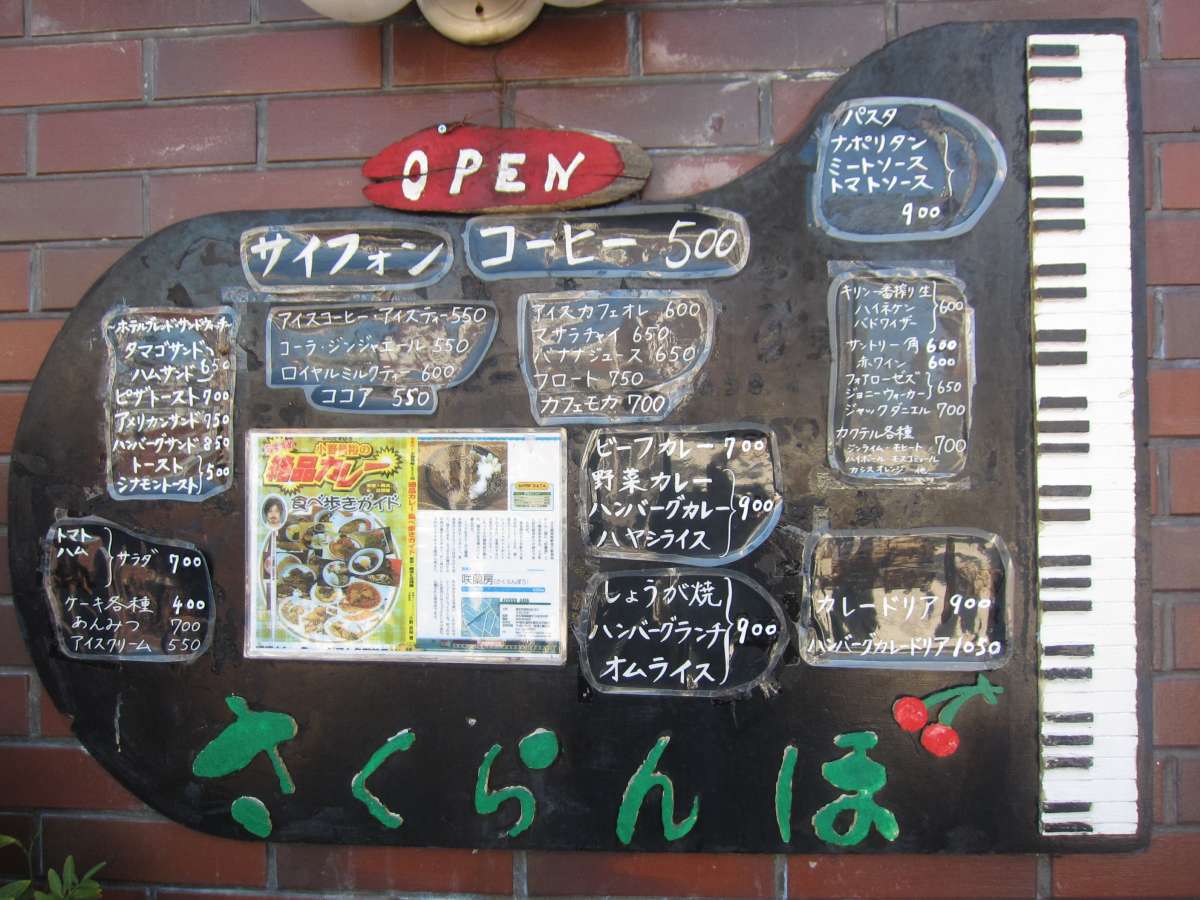 OPEN
サイフォン
コーヒー 500
パスタ
ナポリタン
ミートソース
トマトソース
900
~ホテルブレッド・サンドウィッチ~
タマゴサンド
ハムサンド 650
ピザトースト 700
アメリカンサンド 750
ハンバーグサンド 850
トースト
シナモントースト 500
アイスコーヒー・アイスティー 550
コーラ・ジンジャエール 550
ロイヤルミルクティー 600
ココア 550
アイスカフェオレ 600
マサラチャイ 650
バナナジュース 650
フロート 750
カフェモカ 700
キリン一番搾り生
ハイネケン 600
バドワイザー
サントリー角 600
赤ワイン 600
フォアローゼズ
ジョニーウォーカー 650
ジャックダニエル 700
カクテル各種 700
ジンライム・モヒート
ハイボール・モスコミュール
カシスオレンジ 他
トマト
ハム
サラダ 700
ケーキ各種 400
あんみつ 700
アイスクリーム 550
絶品カレー
食べ歩きガイド
咲蘭房
ビーフカレー 700
野菜カレー
ハンバーグカレー 900
ハヤシライス
しょうが焼
ハンバーグランチ 900
オムライス
カレードリア 900
ハンバーグカレードリア 1050
さくらんぼ